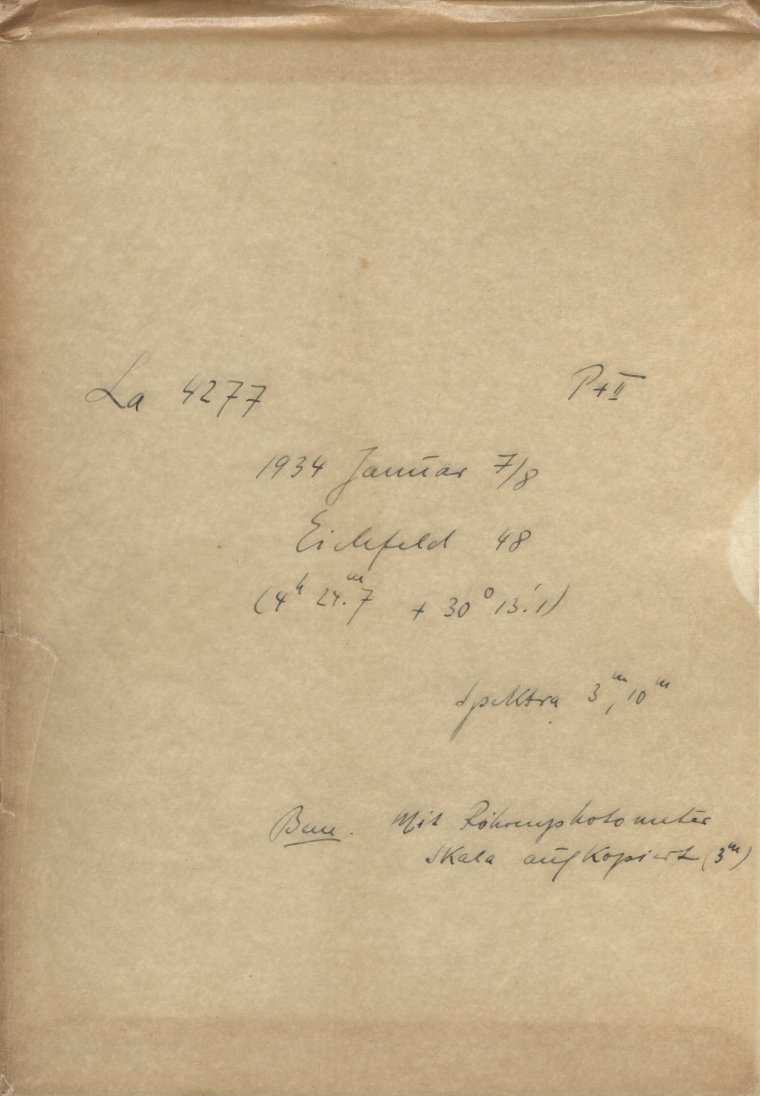 La 4277 P+II
1934 Januar 7/8
Eichfeld 48
(4ʰ 24.ᵐ7 + 30° 13.′1)
Spektra 3ᵐ, 10ᵐ
Bem. Mit Röhrenphotometer
Skala aufkopiert (3ᵐ)